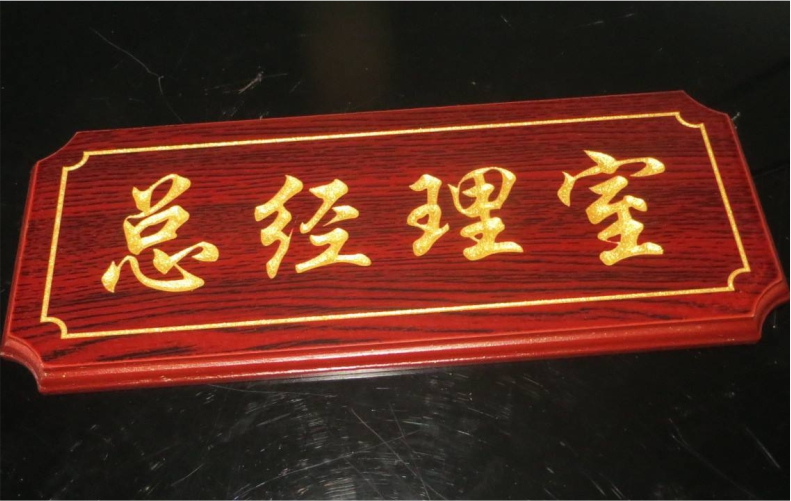 总经理室